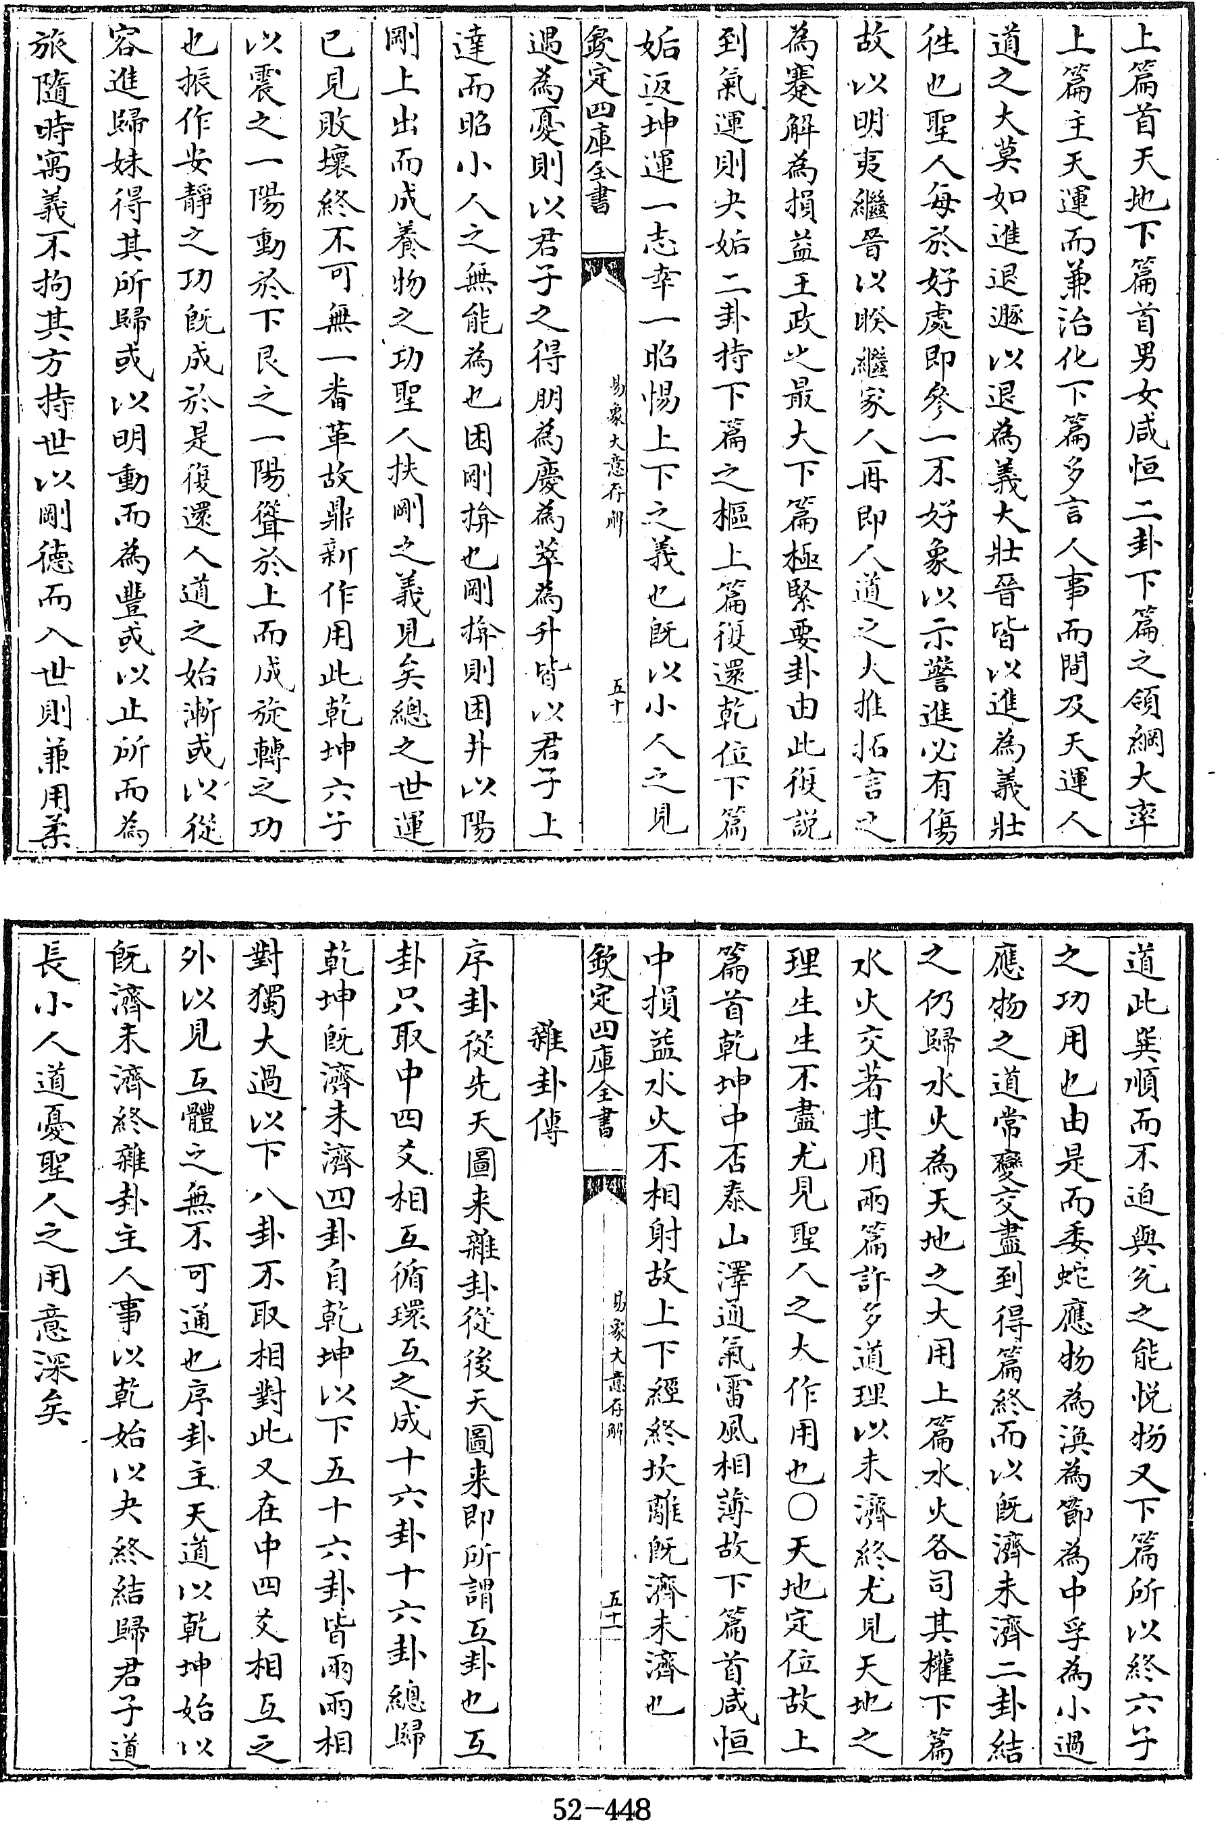 上篇首天地下篇首男女咸恒二卦下篇之領綱大率
上篇主天運而兼治化下篇多言人事而間及天運人
道之大莫如進退遯以退為義大壯晉皆以進為義壯
徃也聖人每於好處即參一不好象以示警進必有傷
故以明夷繼晉以睽繼家人再即人道之大推拓言之
為蹇解為損益王政之最大下篇極緊要卦由此復説
到氣運則夬姤二卦持下篇之樞上篇復還乾位下篇
姤返坤運一志幸一昭惕上下之義也既以小人之見
欽定四庫全書
易象大意存解
五十
遇為憂則以君子之得朋為慶為萃為升皆以君子上
達而昭小人之無能為也困剛揜也剛揜則困井以陽
剛上出而成養物之功聖人扶剛之義見矣總之世運
已見敗壞終不可無一番革故鼎新作用此乾坤六子
以震之一陽動於下艮之一陽聳於上而成旋轉之功
也振作安靜之功既成於是復還人道之始漸或以從
容進歸妹得其所歸或以明動而為豐或以止所而為
旅隨時寓義不拘其方持世以剛德而入世則兼用柔
道此巽順而不迫與兊之能悅物又下篇所以終六子
之功用也由是而委蛇應物為渙為節為中孚為小過
應物之道常變交盡到得篇終而以既濟未濟二卦結
之仍歸水火為天地之大用上篇水火各司其權下篇
水火交著其用兩篇許多道理以未濟終尤見天地之
理生生不盡尤見聖人之大作用也○天地定位故上
篇首乾坤中否泰山澤通氣雷風相薄故下篇首咸恒
中損益水火不相射故上下經終坎離既濟未濟也
欽定四庫全書
易象大意存解
五十一
雜卦傳
序卦從先天圖来雜卦從後天圖来即所謂互卦也互
卦只取中四爻相互循環互之成十六卦十六卦總歸
乾坤既濟未濟四卦自乾坤以下五十六卦皆兩兩相
對獨大過以下八卦不取相對此又在中四爻相互之
外以見互體之無不可通也序卦主天道以乾坤始以
既濟未濟終雜卦主人事以乾始以夬終結歸君子道
長小人道憂聖人之用意深矣
52-448